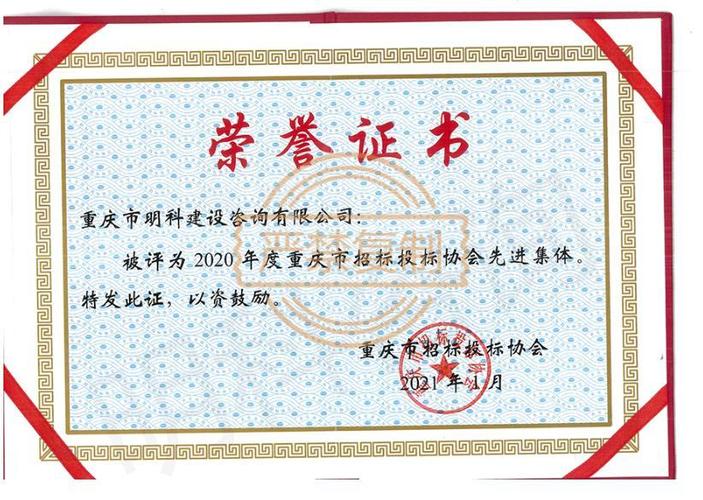 荣誉证书
重庆市明科建设咨询有限公司：
被评为2020年度重庆市招标投标协会先进集体。
特发此证，以资鼓励。
严禁复制
重庆市招标投标协会
2021年1月
重庆市招标投标协会